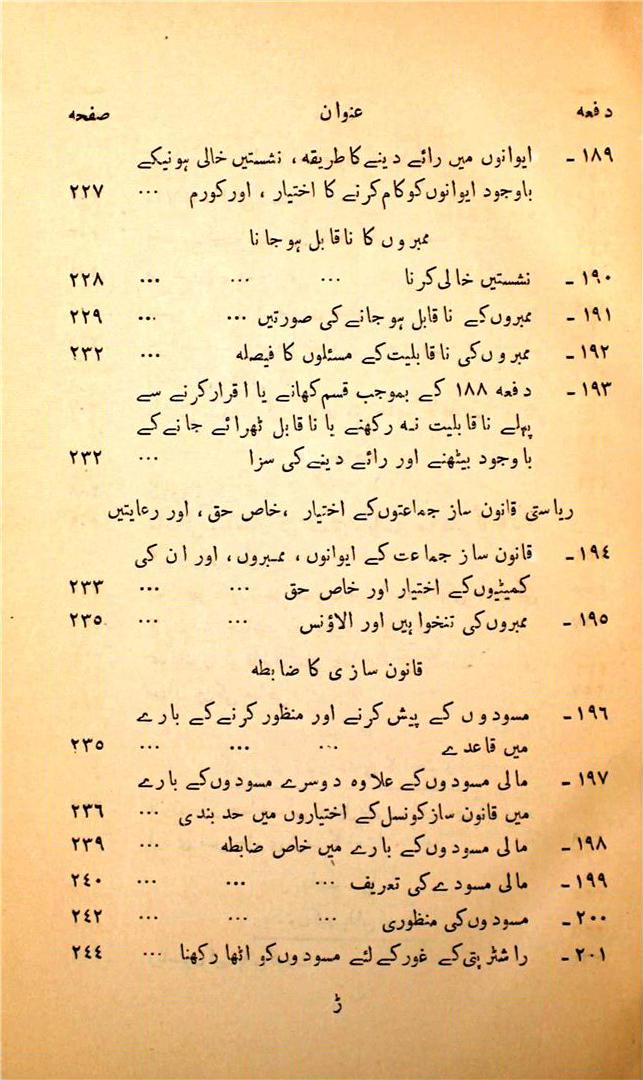 دفعہ عنوان صفحہ
۱۸۹ - ایوانوں میں رائے دینے کا طریقہ ، نشستیں خالی ہونیکے
باوجود ایوانوں کو کام کرنے کا اختیار ، اور کورم ... ۲۲۷
ممبروں کا ناقابل ہو جانا
۱۹۰ - نشستیں خالی کرنا ... ... ... ۲۲۸
۱۹۱ - ممبروں کے ناقابل ہو جانے کی صورتیں ... ... ۲۲۹
۱۹۲ - ممبروں کی ناقابلیت کے مسئلوں کا فیصلہ ... ۲۳۲
۱۹۳ - دفعہ ۱۸۸ کے بموجب قسم کھانے یا اقرار کرنے سے
پہلے ناقابلیت نہ رکھنے یا ناقابل ٹھرائے جانے کے
باوجود بیٹھنے اور رائے دینے کی سزا ... ۲۳۲
ریاستی قانون ساز جماعتوں کے اختیار ، خاص حق ، اور رعایتیں
۱۹٤ - قانون ساز جماعت کے ایوانوں ، ممبروں ، اور ان کی
کمیٹیوں کے اختیار اور خاص حق ... ... ۲۳۳
۱۹٥ - ممبروں کی تنخواہیں اور الاؤنس ... ... ۲۳٥
قانون سازی کا ضابطہ
۱۹٦ - مسودوں کے پیش کرنے اور منظور کرنے کے بارے
میں قاعدے ... ... ... ۲۳٥
۱۹۷ - مالی مسودوں کے علاوہ دوسرے مسودوں کے بارے
میں قانون ساز کونسل کے اختیاروں میں حد بندی ... ۲۳٦
۱۹۸ - مالی مسودوں کے بارے میں خاص ضابطہ ... ۲۳۹
۱۹۹ - مالی مسودے کی تعریف ... ... ... ۲٤۰
۲۰۰ - مسودوں کی منظوری ... ... ... ۲٤۲
۲۰۱ - راشٹرپتی کے غور کے لئے مسودوں کو اٹھا رکھنا ... ۲٤٤
ڑ